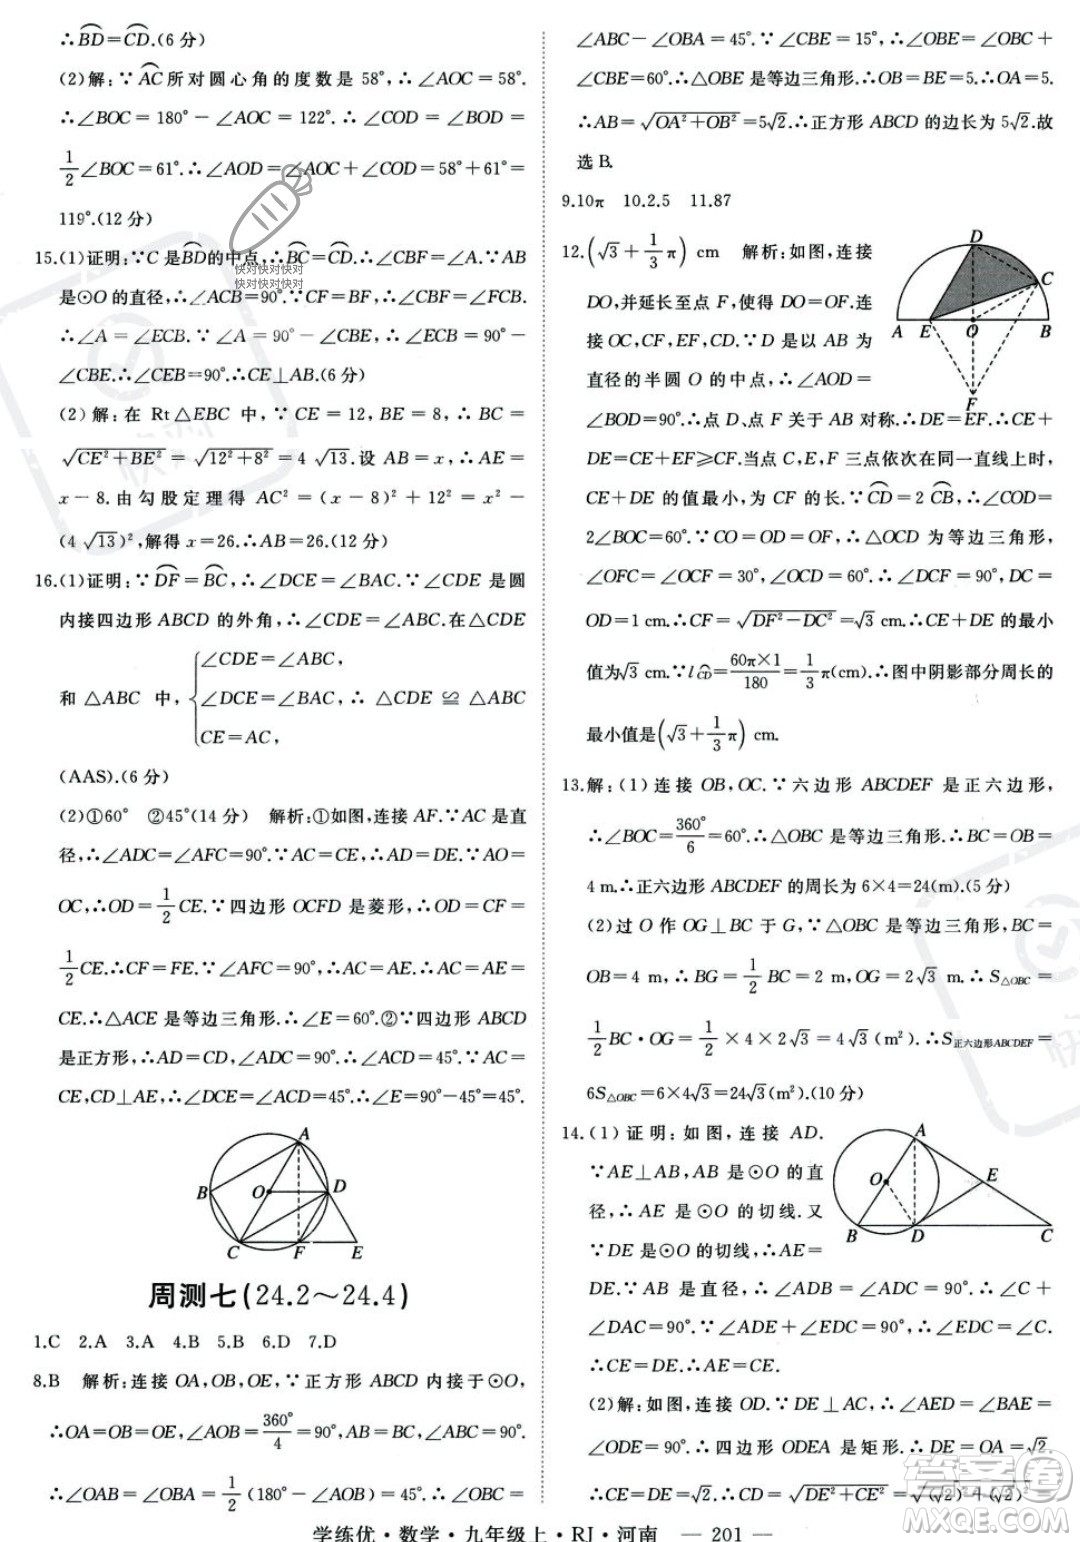 ∴BD=CD.(6分)
(2)解:∵AC所对圆心角的度数是58°,∴∠AOC=58°.
∴∠BOC=180°-∠AOC=122°.∴∠COD=∠BOD=
1/2∠BOC=61°.∴∠AOD=∠AOC+∠COD=58°+61°=
119°.(12分)
15.(1)证明:∵C是BD的中点,∴BC=CD.∴∠CBF=∠A.∵AB
是⊙O的直径,∴∠ACB=90°.∵CF=BF,∴∠CBF=∠FCB.
∴∠A=∠ECB.∵∠A=90°-∠CBE,∴∠ECB=90°-
∠CBE.∴∠CEB=90°.∴CE⊥AB.(6分)
(2)解:在Rt△EBC中,∵CE=12,BE=8,∴BC=
√(CE²+BE²)=√(12²+8²)=4√13.设AB=x,∴AE=
x-8.由勾股定理得AC²=(x-8)²+12²=x²-
(4√13)²,解得x=26.∴AB=26.(12分)
16.(1)证明:∵DF=BC,∴∠DCE=∠BAC.∵∠CDE是圆
内接四边形ABCD的外角,∴∠CDE=∠ABC.在△CDE
∠CDE=∠ABC,
和△ABC中,{∠DCE=∠BAC,∴△CDE≌△ABC
CE=AC,
(AAS).(6分)
(2)①60° ②45°(14分) 解析:①如图,连接AF.∵AC是直
径,∴∠ADC=∠AFC=90°.∵AC=CE,∴AD=DE.∵AO=
OC,∴OD=1/2CE.∵四边形OCFD是菱形,∴OD=CF=
1/2CE.∴CF=FE.∵∠AFC=90°,∴AC=AE.∴AC=AE=
CE.∴△ACE是等边三角形.∴∠E=60°.②∵四边形ABCD
是正方形,∴AD=CD,∠ACD=45°.∵AC=CE,AD=
CD,CD⊥AE,∴∠DCE=∠ACD=45°.∴∠DCE=45°.
A
B
O
D
C
F
E
周测七(24.2～24.4)
1.C 2.A 3.A 4.B 5.B 6.D 7.D
8.B 解析:连接OA,OB,OE,∵正方形ABCD内接于⊙O,
∴OA=OB=OE,∠AOB=360°/4=90°,AB=BC,∠ABC=90°.
∴∠OAB=∠OBA=1/2(180°-∠AOB)=45°.∴∠OBC=
∠ABC-∠OBA=45°.∵∠CBE=15°,∴∠OBE=∠OBC+
∠CBE=60°.∴△OBE是等边三角形.∴OB=BE=5.∴OA=5.
∴AB=√(OA²+OB²)=5√2.∴正方形ABCD的边长为5√2.故
选B.
9.10π 10.2.5 11.87
12.(√3+1/3π) cm 解析:如图,连接
DO,并延长至点F,使得DO=OF.连
接OC,CF,EF,CD.∵D是以AB为
直径的半圆O的中点,∴∠AOD=
∠BOD=90°.∴点D、点F关于AB对称.∴DE=EF.∴CE+
DE=CE+EF≥CF.当点C,E,F三点依次在同一直线上时,
CE+DE的值最小,为CF的长.∵CD=2CB,∴∠COD=
2∠BOC=60°.∵CO=DO=OF,∴△OCD是等边三角形,
∠OFC=∠OCF=30°,∠CDO=60°.∴∠DCF=90°,DC=
OD=1 cm.∴CF=√(DF²-DC²)=√3 cm.∴CE+DE的最小
值为√3 cm.∵l CD=60π×1/180=1/3π(cm).∴图中阴影部分周长的
最小值是(√3+1/3π) cm.
D
C
A
E
O
B
F
13.解:(1)连接OB,OC.∵六边形ABCDEF是正六边形,
∴∠BOC=360°/6=60°.∴△OBC是等边三角形.∴BC=OB=
4 m.∴正六边形ABCDEF的周长为6×4=24(m).(5分)
(2)过O作OG⊥BC于G,∵△OBC是等边三角形,BC=
OB=4 m,∴BG=1/2BC=2 m,OG=2√3 m.∴S△OBC=
1/2BC·OG=1/2×4×2√3=4√3(m²).∴S正六边形ABCDEF=
6S△OBC=6×4√3=24√3(m²).(10分)
14.(1)证明:如图,连接AD.
∵AE⊥AB,AB是⊙O的直
径,∴AE是⊙O的切线.又
∵DE是⊙O的切线,∴AE=
DE.∵AB是直径,∴∠ADB=∠ADC=90°.∴∠C+
∠DAC=90°.∵∠ADE+∠CDE=90°,∴∠C=∠CDE.
∴CE=DE.∴CE=DE=AE.
A
O
E
B
D
C
(2)解:如图,连接OD.∵DE⊥AC,∴∠AED=∠BAE=
∠ODE=90°.∴四边形ODEA是矩形.∴DE=OA=√2.
∴CE=DE=√2.∴CD=√(DE²+CE²)=√((√2)²+(√2)²)
学练优·数学·九年级上·RJ·河南 — 201 —
快对快对快对
快对快对快对
答案圈
MXQE.COM